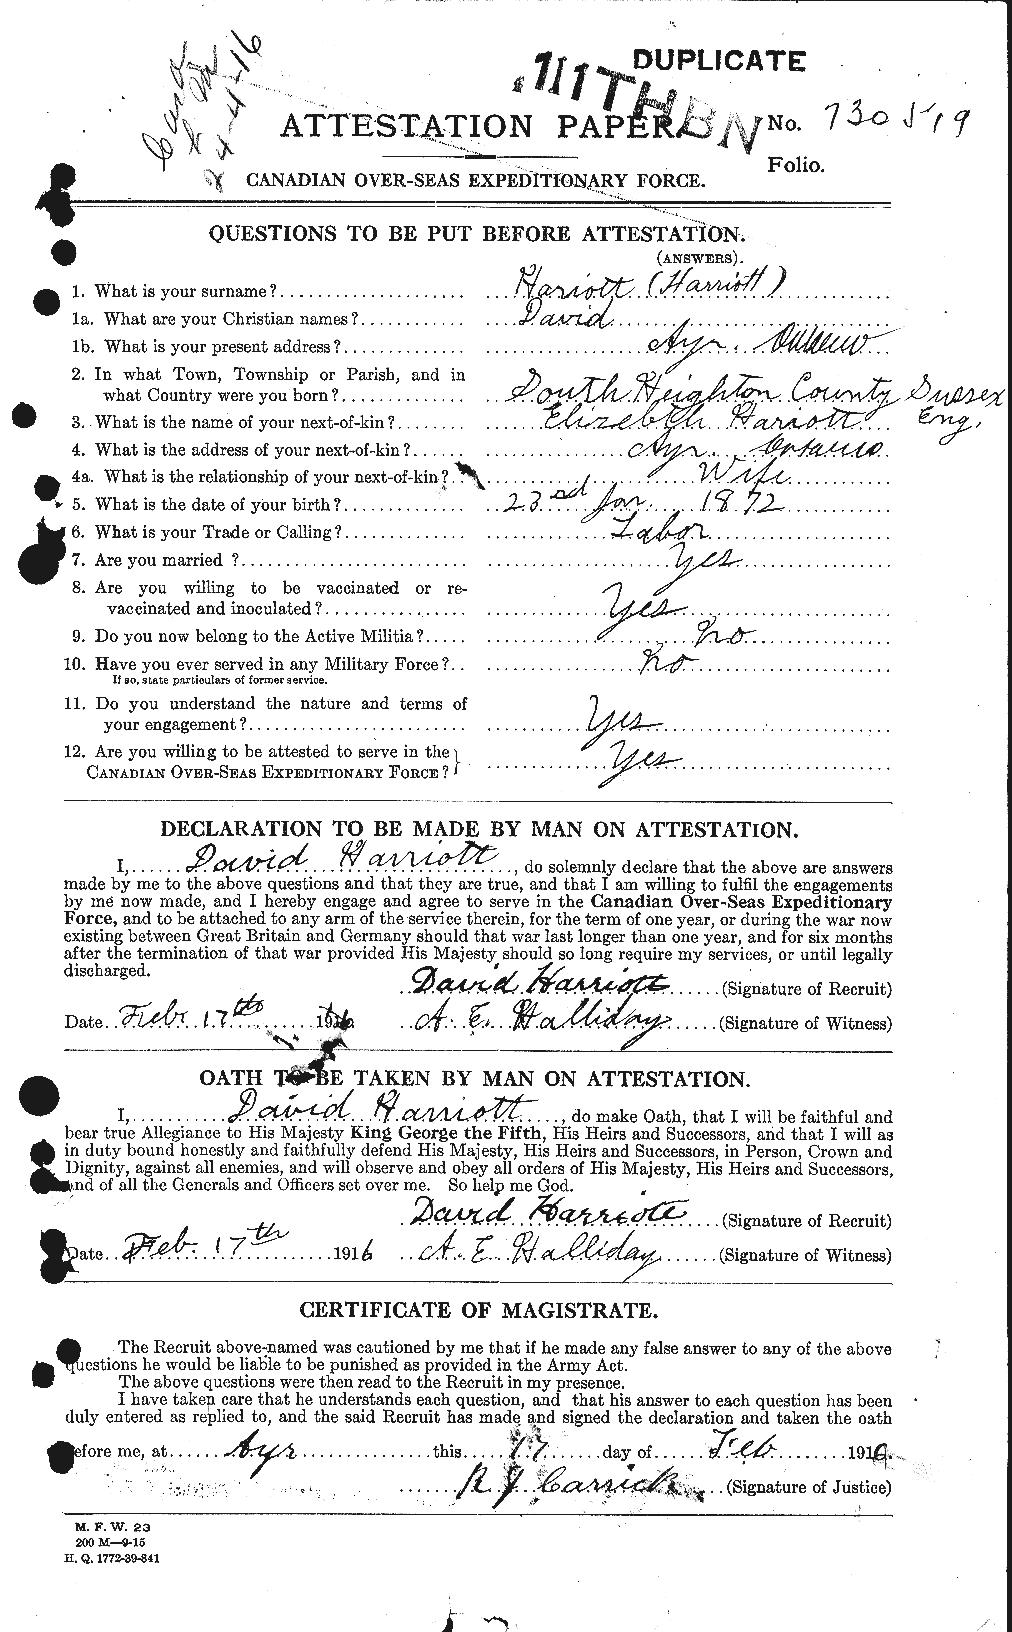 DUPLICATE
111TH BN
24-4-16
ATTESTATION PAPER. No. 730519
Folio.
CANADIAN OVER-SEAS EXPEDITIONARY FORCE.
QUESTIONS TO BE PUT BEFORE ATTESTATION.
(ANSWERS).
1. What is your surname? Hariott (Harriott)
1a. What are your Christian names? David
1b. What is your present address? Ayr. Ontario
2. In what Town, Township or Parish, and in
what Country were you born? South Heighton County Sussex
Eng.
3. What is the name of your next-of-kin? Elizebeth Hariott
4. What is the address of your next-of-kin? Ayr. Ontario
4a. What is the relationship of your next-of-kin? Wife
5. What is the date of your birth? 23rd Jan. 1872
6. What is your Trade or Calling? Labor
7. Are you married ? Yes
8. Are you willing to be vaccinated or re-
vaccinated and inoculated? Yes
9. Do you now belong to the Active Militia? No
10. Have you ever served in any Military Force? No
If so, state particulars of former service.
11. Do you understand the nature and terms of
your engagement? Yes
12. Are you willing to be attested to serve in the
CANADIAN OVER-SEAS EXPEDITIONARY FORCE? Yes
DECLARATION TO BE MADE BY MAN ON ATTESTATION.
I, David Harriott, do solemnly declare that the above are answers
made by me to the above questions and that they are true, and that I am willing to fulfil the engagements
by me now made, and I hereby engage and agree to serve in the Canadian Over-Seas Expeditionary
Force, and to be attached to any arm of the service therein, for the term of one year, or during the war now
existing between Great Britain and Germany should that war last longer than one year, and for six months
after the termination of that war provided His Majesty should so long require my services, or until legally
discharged.
David Harriott (Signature of Recruit)
Date Feb 17th 1916 A. E. Halliday (Signature of Witness)
OATH TO BE TAKEN BY MAN ON ATTESTATION.
I, David Harriott, do make Oath, that I will be faithful and
bear true Allegiance to His Majesty King George the Fifth, His Heirs and Successors, and that I will as
in duty bound honestly and faithfully defend His Majesty, His Heirs and Successors, in Person, Crown and
Dignity, against all enemies, and will observe and obey all orders of His Majesty, His Heirs and Successors,
and of all the Generals and Officers set over me. So help me God.
David Harriott (Signature of Recruit)
Date Feb. 17th 1916 A. E Halliday (Signature of Witness)
CERTIFICATE OF MAGISTRATE.
The Recruit above-named was cautioned by me that if he made any false answer to any of the above
questions he would be liable to be punished as provided in the Army Act.
The above questions were then read to the Recruit in my presence.
I have taken care that he understands each question, and that his answer to each question has been
duly entered as replied to, and the said Recruit has made and signed the declaration and taken the oath
before me, at Ayr this 17 day of Feb 1916.
R J Carrick (Signature of Justice)
M. F. W. 23
200 M—9-15
H. Q. 1772-39-841